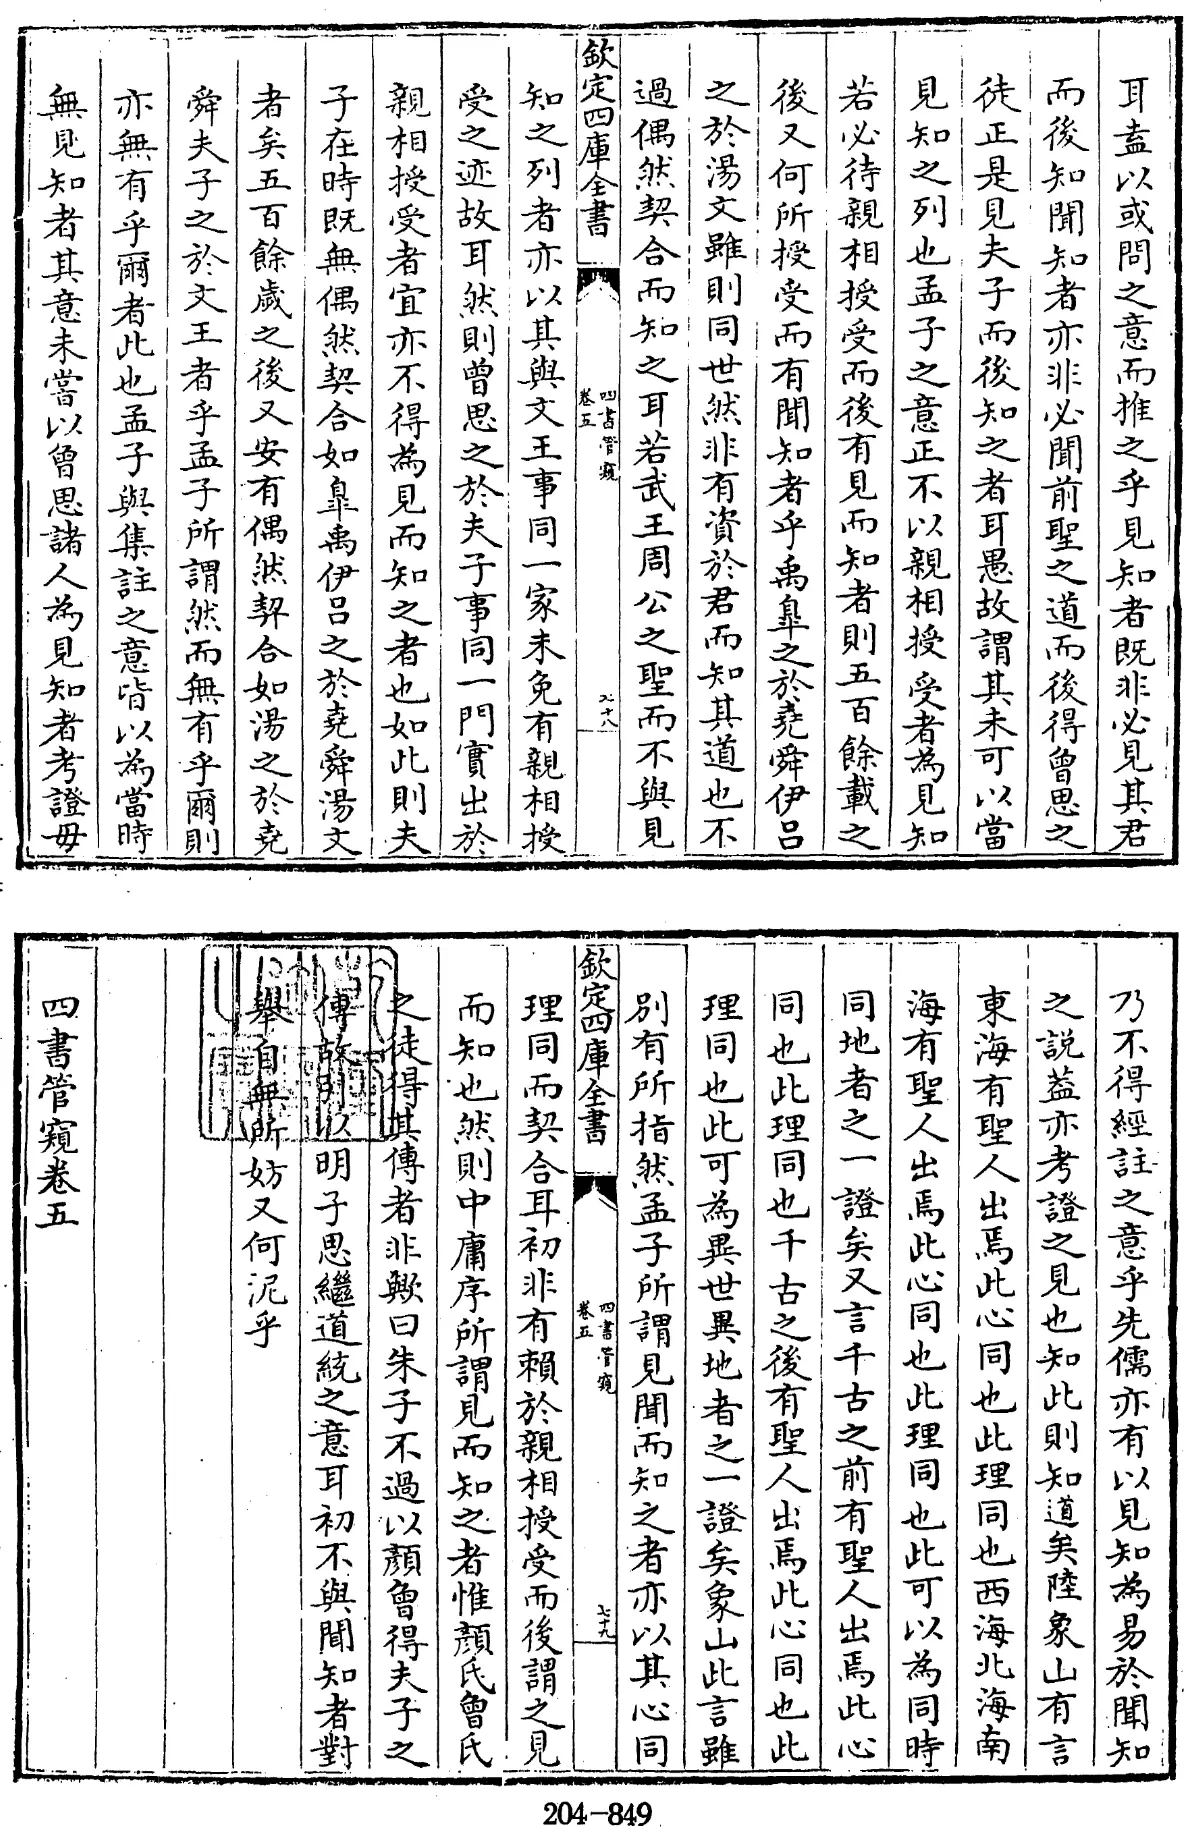 耳盍以或問之意而推之乎見知者既非必見其君
而後知聞知者亦非必聞前聖之道而後得曾思之
徒正是見夫子而後知之者耳愚故謂其未可以當
見知之列也孟子之意正不以親相授受者為見知
若必待親相授受而後有見而知者則五百餘載之
後又何所授受而有聞知者乎禹臯之於堯舜伊吕
之於湯文雖則同世然非有資於君而知其道也不
過偶然契合而知之耳若武王周公之聖而不與見
欽定四庫全書
四書管窺
卷五
七十八
知之列者亦以其與文王事同一家未免有親相授
受之迹故耳然則曾思之於夫子事同一門實出於
親相授受者宜亦不得為見而知之者也如此則夫
子在時既無偶然契合如臯禹伊吕之於堯舜湯文
者矣五百餘歲之後又安有偶然契合如湯之於堯
舜夫子之於文王者乎孟子所謂然而無有乎爾則
亦無有乎爾者此也孟子與集註之意皆以為當時
無見知者其意未嘗以曾思諸人為見知者考證毋
乃不得經註之意乎先儒亦有以見知為易於聞知
之說葢亦考證之見也知此則知道矣陸象山有言
東海有聖人出焉此心同也此理同也西海北海南
海有聖人出焉此心同也此理同也此可以為同時
同地者之一證矣又言千古之前有聖人出焉此心
同也此理同也千古之後有聖人出焉此心同也此
理同也此可為異世異地者之一證矣象山此言雖
別有所指然孟子所謂見聞而知之者亦以其心同
欽定四庫全書
四書管窺
卷五
七十九
理同而契合耳初非有賴於親相授受而後謂之見
而知也然則中庸序所謂見而知之者惟顏氏曾氏
之徒得其傳者非歟曰朱子不過以顏曾得夫子之
傳故引以明子思繼道統之意耳初不與聞知者對
舉自無所妨又何泥乎
四書管窺卷五
204-849